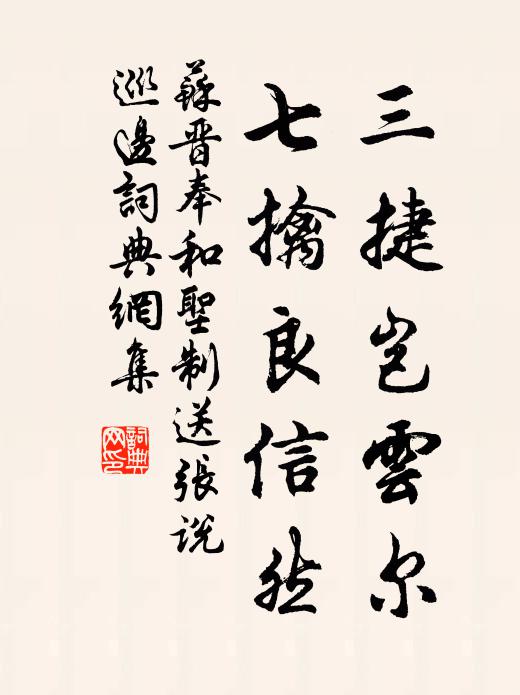 三捷岂雲尔
七擒良信然
蘇晋奉和聖制送張说
巡邊詞典網集
詞典网印